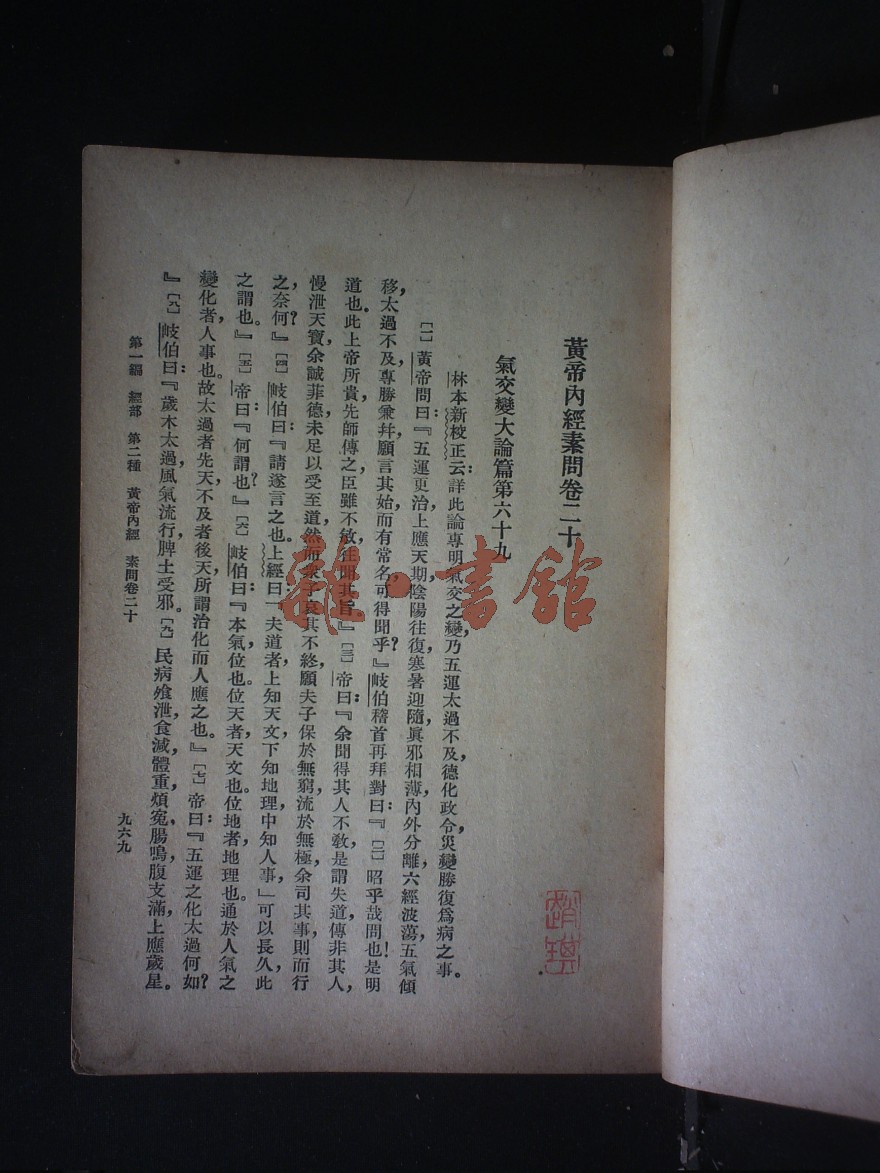 黃帝內經素問卷二十
氣交變大論篇第六十九
林本新校正云：詳此論專明氣交之變，乃五運太過不及，德化政令，災變勝復爲病之事。
〔一〕黃帝問曰：『五運更治，上應天期，陰陽往復，寒暑迎隨，眞邪相薄，內外分離，六經波蕩，五氣傾
移，太過不及，專勝兼幷，願言其始，而有常名，可得聞乎？』岐伯稽首再拜對曰：『〔二〕昭乎哉問也！是明
道也。此上帝所貴，先師傳之，臣雖不敏，往聞其旨。』〔三〕帝曰：『余聞得其人不敎，是謂失道，傳非其人，
慢泄天寶，余誠菲德，未足以受至道，然而衆子哀其不終，願夫子保於無窮，流於無極，余司其事，則而行
之，奈何？』〔四〕岐伯曰：『請遂言之也。上經曰：「夫道者，上知天文，下知地理，中知人事，」可以長久，此
之謂也。』〔五〕帝曰：『何謂也？』〔六〕岐伯曰：『本氣位也。位天者，天文也。位地者，地理也。通於人氣之
變化者，人事也。故太過者先天，不及者後天，所謂治化而人應之也。』〔七〕帝曰：『五運之化太過何如？
』〔八〕岐伯曰：『歲木太過，風氣流行，脾土受邪。〔九〕民病飧泄，食減，體重，煩寃，腸鳴，腹支滿，上應歲星。
第一編　經部　第二種　黃帝內經　素問卷二十
九六九
雜·書館